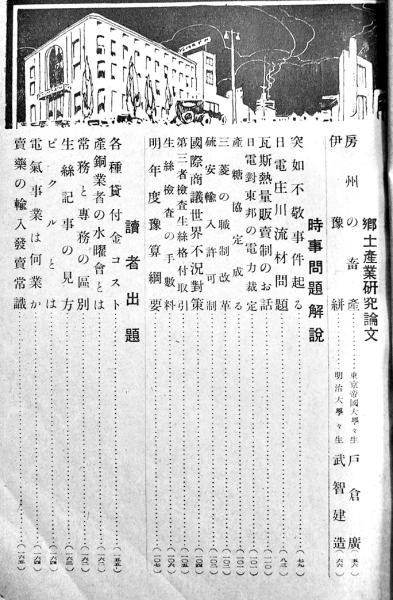 鄕土產業硏究論文
房州の畜產……東京帝國大學々生 戶倉廣
伊豫絣……明治大學々生 武智建造
時事問題解說
突如不敬事件起る……(七九)
日電庄川流材問題……(八三)
瓦斯熱量販賣制のお話……
日電對東邦の電力裁定……
產糖協定成る……
三菱の職制改革……
硫安輸入許可制……(一〇三)
國際商議世界不況對策……(一〇四)
第三者檢查生絲格付取引……(一〇五)
生絲檢查の手數料……
明年度豫算綱要……(一〇七)
讀者出題
各種貸付金コスト……(一五五)
產銅業者の水曜會とは……
常務と專務の區別……
生絲記事の見方……(一六三)
ピクルとは……(一六四)
電氣事業は何業か……(一六四)
賣藥の輸入發賣常識……(一六五)